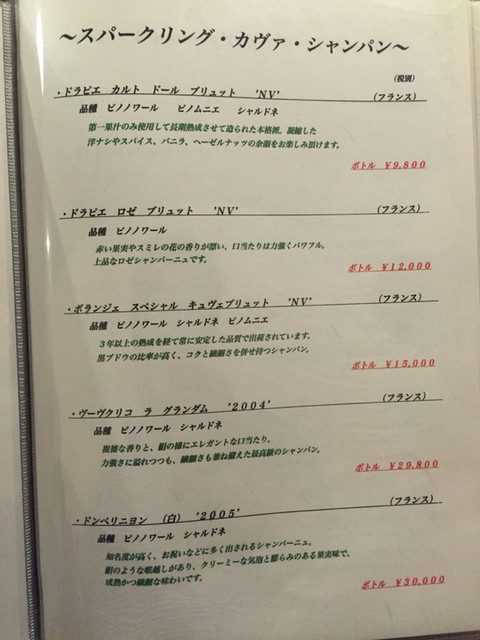 ～スパークリング・カヴァ・シャンパン～
（税別）
・ドラピエ　カルト　ドール　ブリュット　'NV'　（フランス）
品種　ピノノワール　ピノムニエ　シャルドネ
第一果汁のみ使用して長期熟成させて造られた本格派。凝縮した
洋ナシやスパイス、バニラ、ヘーゼルナッツの余韻をお楽しみ頂けます。
ボトル　￥9,800
・ドラピエ　ロゼ　ブリュット　'NV'　（フランス）
品種　ピノノワール
赤い果実やスミレの花の香りが漂い、口当たりは力強くパワフル。
上品なロゼシャンパーニュです。
ボトル　￥12,000
・ボランジェ　スペシャル　キュヴェブリュット　'NV'　（フランス）
品種　ピノノワール　シャルドネ　ピノムニエ
３年以上の熟成を経て常に安定した品質で出荷されています。
黒ブドウの比率が高く、コクと繊細さを併せ持つシャンパン。
ボトル　￥15,000
・ヴーヴクリコ　ラ　グランダム　'２００４'　（フランス）
品種　ピノノワール　シャルドネ
複雑な香りと、絹の様にエレガントな口当たり。
力強さに溢れつつも、繊細さも兼ね備えた最高級のシャンパン。
ボトル　￥29,800
・ドンペリニヨン　（白）　'２００５'　（フランス）
品種　ピノノワール　シャルドネ
知名度が高く、お祝いなどに多く出されるシャンパーニュ。
絹のような喉越しがあり、クリーミーな気泡と膨らみのある果実味で、
成熟かつ繊細な味わいです。
ボトル　￥30,000